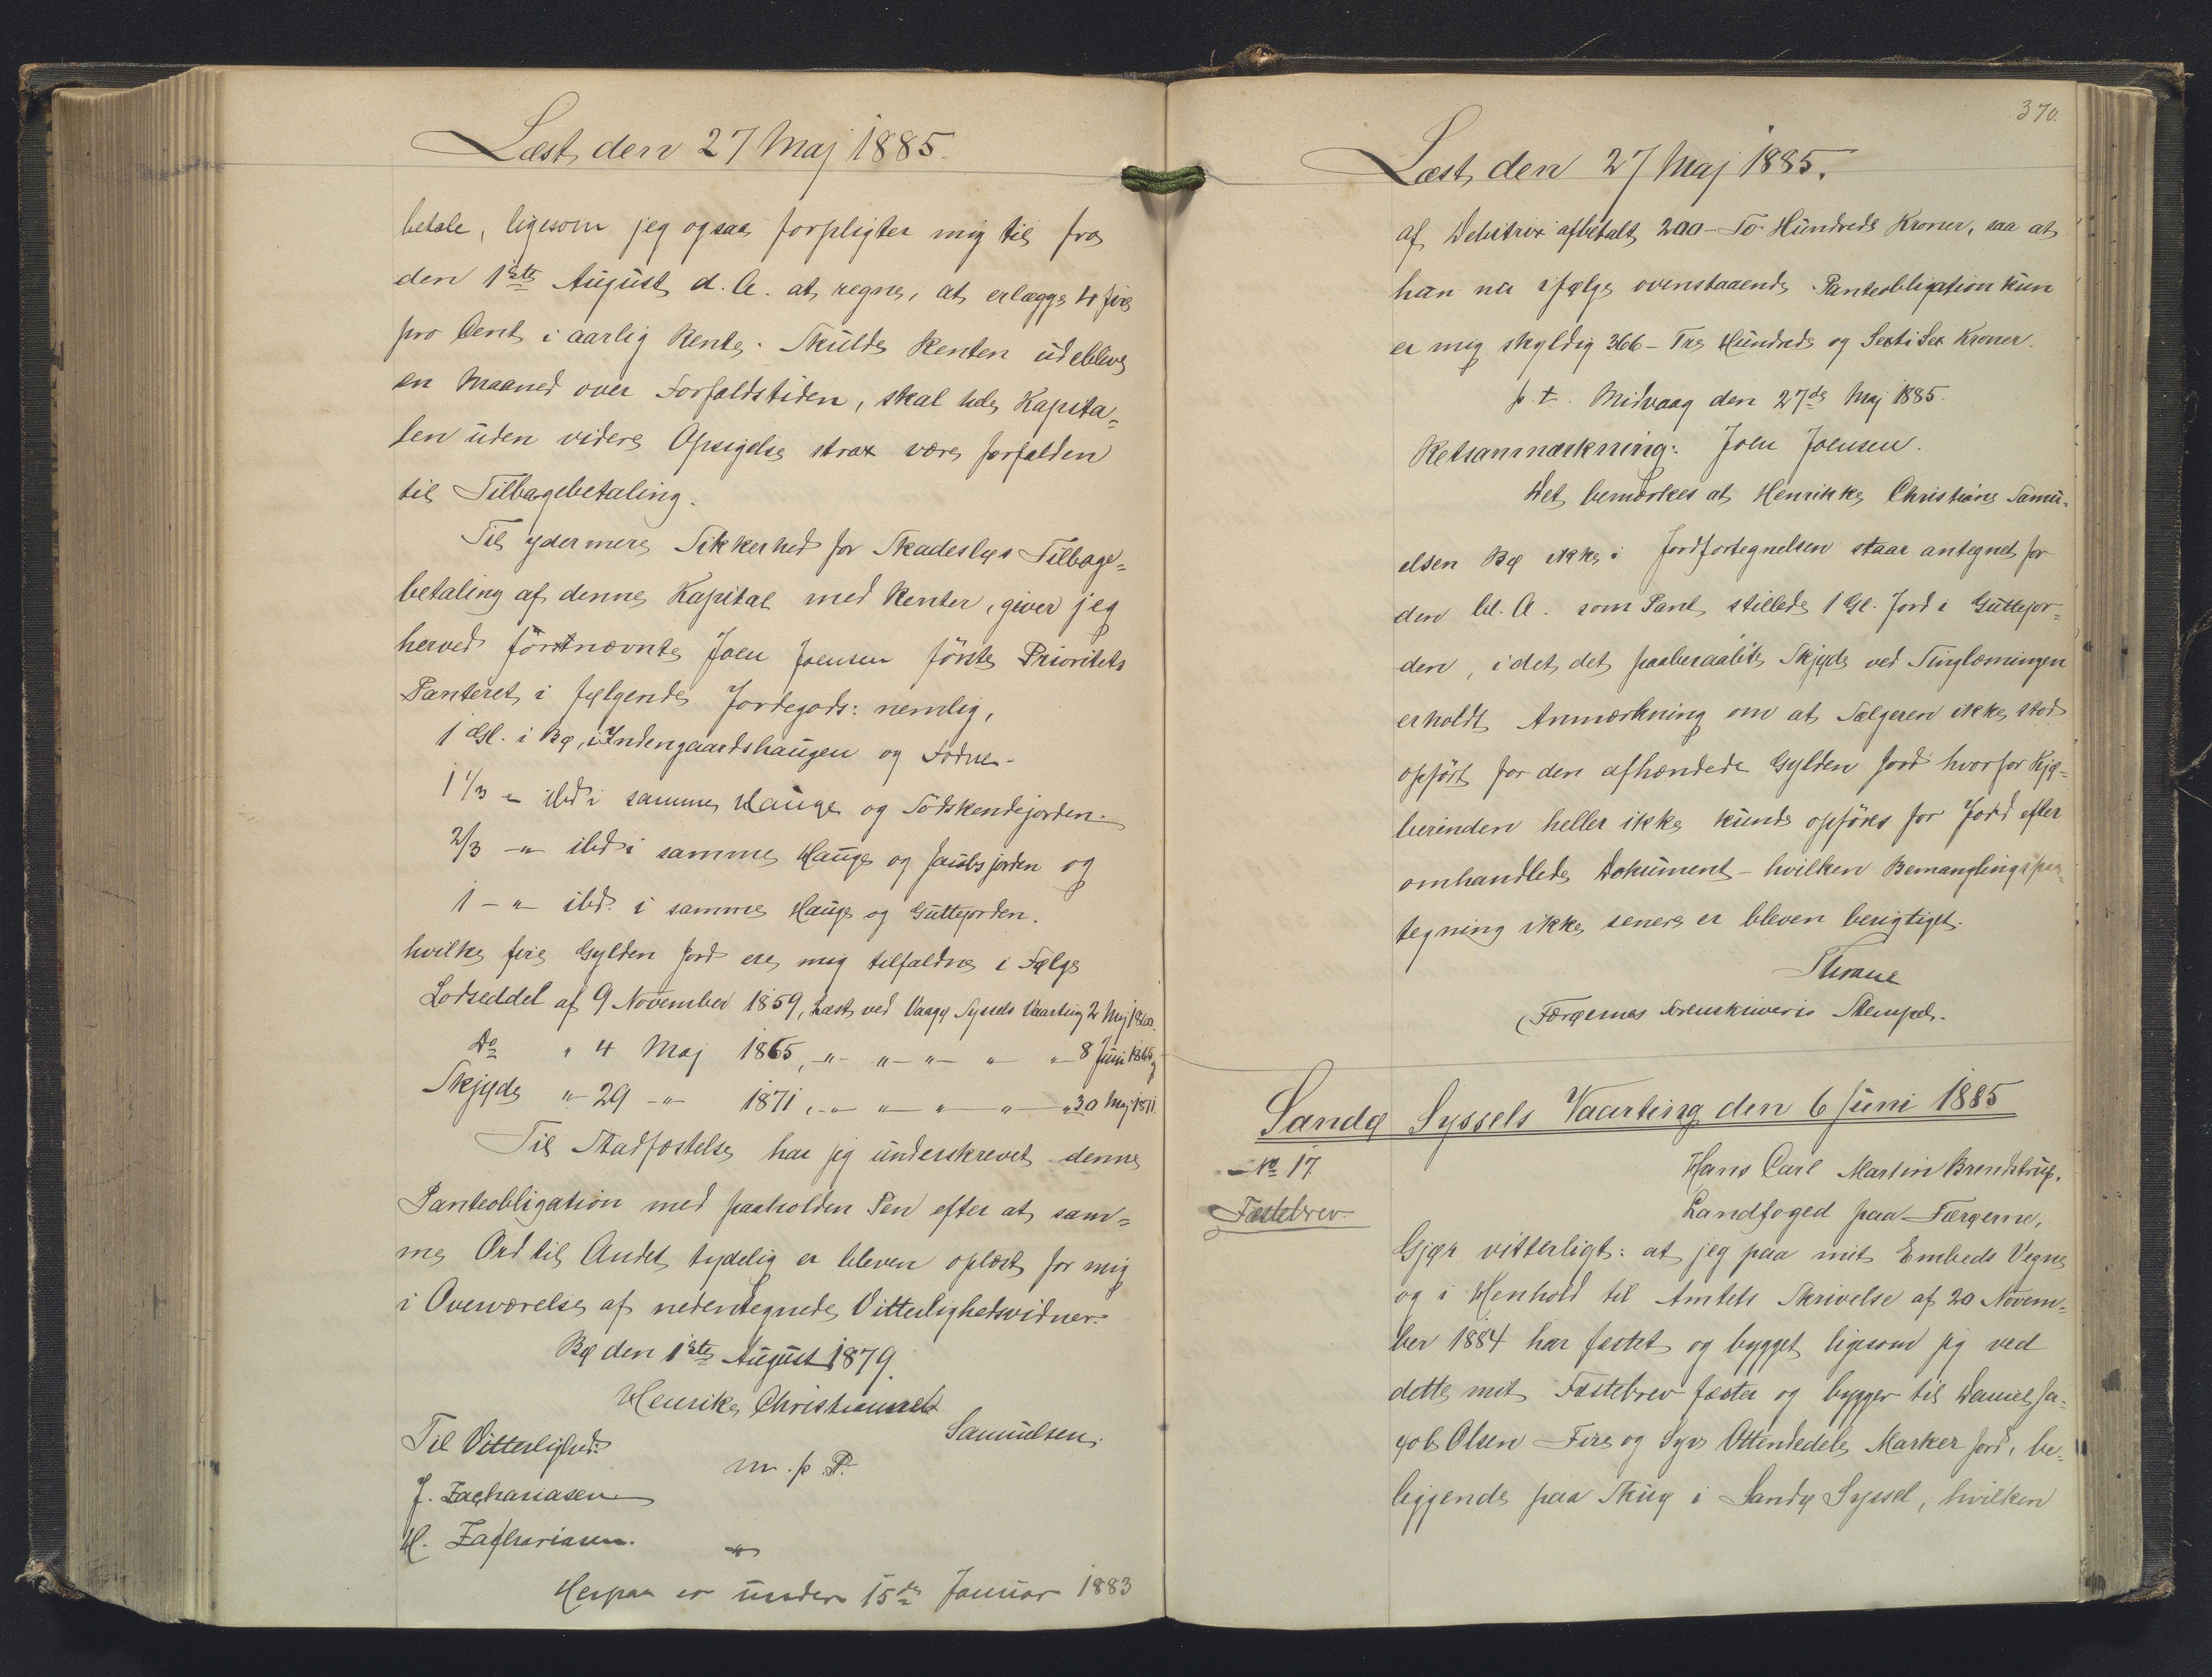 Læst den 27 Maj 1885.
betale, ligesom jeg ogsaa forpligter mig til fra
den 1ste August d. A. at regne, at erlægge 4 fire
pro Cent i aarlig Rente. Skulde Renten udeblive
en Maaned over Forfaldstiden, skal hele Kapita=
len uden videre Opsigelse strax være forfalden
til Tilbagebetaling.
Til ydermere Sikkerhed for Skadesløs Tilbage=
betaling af denne Kapital med Renter, giver jeg
herved förstnævnte Joen Joensen förste Prioritets
Panteret i følgende Jordegods: nemlig,
1 Gl. i Bø, i Indengaardshaugen og
1 1/3 " ibd i samme Hauge og Södskendejorden.
2/3 -"- ibd i samme Hauge og Jacobsjorden og
1 -"- ibd. i samme Hauge og Guttejorden.
hvilke fire Gylden Jord ere mig tilfaldne i Følge
Lodseddel af 9 November 1859, Læst ved Vaagø Syssels Vaarting 2 Maj 1860.
Do " 4 Maj 1865, -"- "- "- " " 8 Juni 1865 og
Skjøde "- 29 -"- 1871, -"- "- "- "- " 30 Maj 1871.
Til Stadfæstelse har jeg underskrevet denne
Panteobligation med paaholden Pen efter at sam=
me Ord til Andet tydelig er bleven oplæst for mig
i Overværelse af nedentegnede Vitterlighedsvidner.
Bø den 1ste August 1879.
Henrike Christiansen
Samuelsen.
Til Vitterlighed:
m. p. P.
J. Zachariasen
H. Zachariasen.
"
Herpaa er under 15de Januar 1883
370.
Læst den 27 Maj 1885.
af Debitrix afbetalt 200 - To Hundrede Kroner, saa at
hun nu ifølge ovenstaaende Panteobligation kun
er mig skyldig 366 - Tre Hundrede og Sexti Sex Kroner.
p. t. Midvaag den 27de Maj 1885.
Retsanmærkning: Joen Joensen.
Det bemærkes at Henrikke Christiane Samu=
elsen Bø ikke i Jordfortegnelsen staar antegnet for
den bl. A. som Pant stillede 1 Gl. Jord i Guttejor=
den, i det det paaberaabte Skjøde ved Tinglæsningen
erholdt Anmærkning om at Sælgeren ikke stod
opfört for den afhændede Gylden Jord hvorfor Kjø=
berinden heller ikke kunde opföres for Jord efter
omhandlede Dokument - hvilken Bemanglingspaa=
tegning ikke senere er bleven berigtiget.
Færøernes Sorenskriveris Stempel.
Sandø Syssels Vaarting den 6 Juni 1885
No 17.
Hans Carl Martin Brendstrup,
Fæstebrev.
Landfoged paa Færøerne,
Gjør vitterligt: at jeg paa mit Embeds Vegne
og i Henhold til Amtets Skrivelse af 20 Novem=
ber 1884 har fæstet og bygget ligesom jeg ved
dette mit Fæstebrev fæster og bygger til Daniel Ja=
cob Olsen Fire og Syv Ottendedele Marker Jord, be=
liggende paa Skuø i Sandø Syssel, hvilken